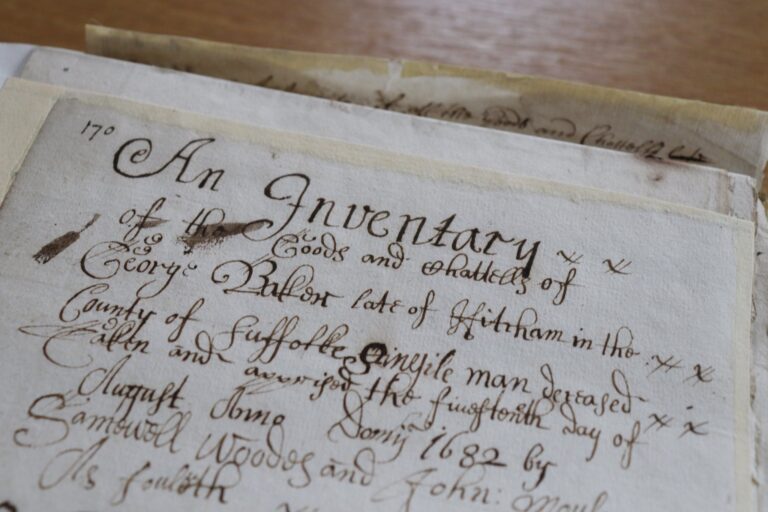 goods and Chattells
170
An Inventary
of the Goods and Chattells of
George Baker late of Hitcham in the
County of Suffolke Singile man deceased
Taken and apprised the fiuefteenth day of
August Anno Domij 1682 by
Samewell Woodes and John: Moul
As fouloth